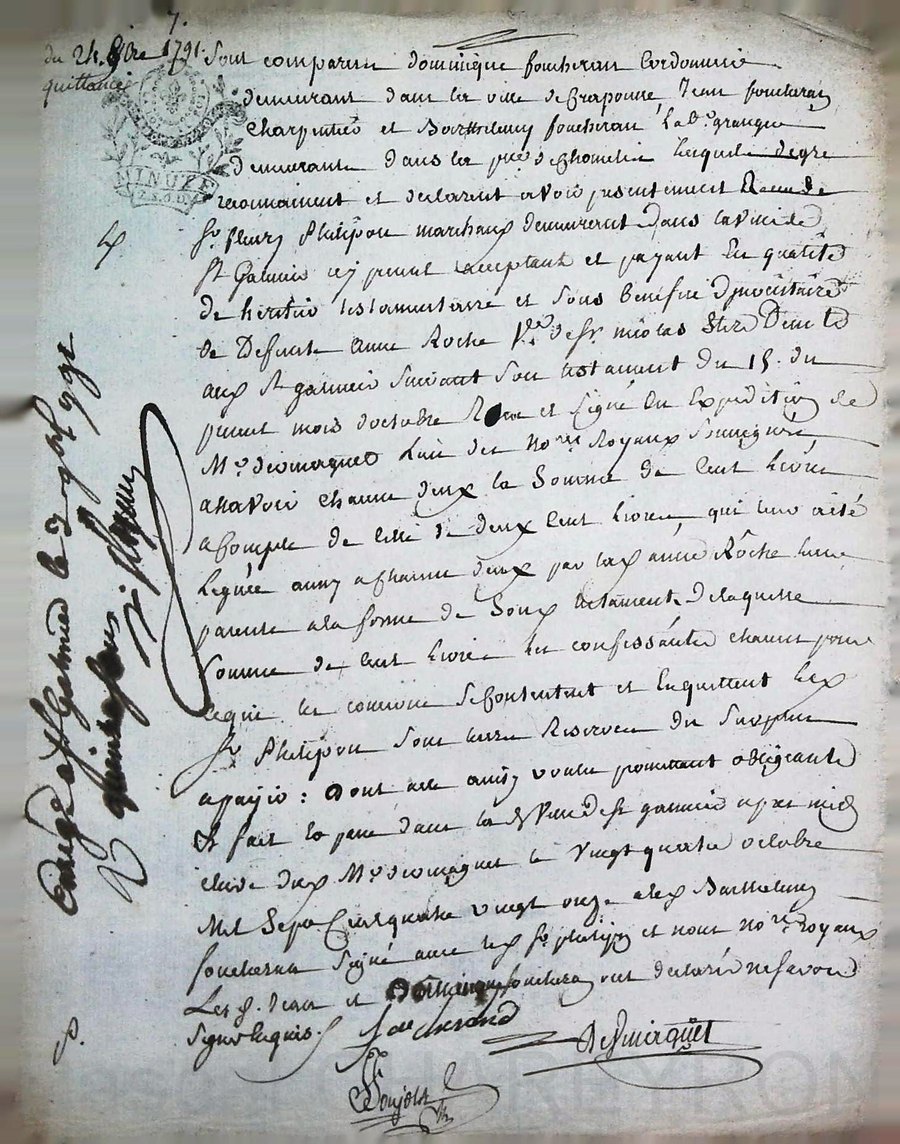 7.
du 24 8bre 1791.
quittance
MINUTE
Sont comparus dominique foucheran Cordonnier
demeurant dans la ville de Craponne, Jean foucheran
Charpentier et Barthelemy foucheran
demeurants dans la de Chomelix lesquels de gré
reconnaissent et declarent avoir presentement Receu de
Sr fleury Philipon marchand demeurant dans la ville de
St Galmier icy present acceptant et payant En qualité
de heritier testamentaire et sous benefice d'inventaire
de Defunte anne Roche Vve de Sr nicolas
aud St galmier suivant son testament du 15. du
present mois d'octobre Receu et signé En Expedition de
Me desmarquet L'un des nores Royaux soussignés
assavoir chacun deux la Somme de Cent livres
a Compte de celle de deux Cent livres qui leur a été
leguée aussy a chacun deux par lad anne Roche leur
parente a la forme de Sond testament, de laquelle
Somme de Cent livres les confessants chacun pour
ce qui les concerne se Contentent et En quittent led
Sr Philipon sous leurs Reserves du Surplus
a payer: Dont acte ainsy voulu promettant obligeants
et fait et passé dans la ville de St galmier apres midy
Etude dud Me desmarquet le vingt quatre octobre
Mil Sept Cent quatre vingt onze et led Barthelemy
foucheran Signé avec led Sr philipon et nous nores royaux
Les d. Jean et Dominique foucheran ont declaré ne savoir
Signer Requis.
foucherand
Desmarquet
Enregé a St Galmier le 91
R quinze sous
CHAREYRON